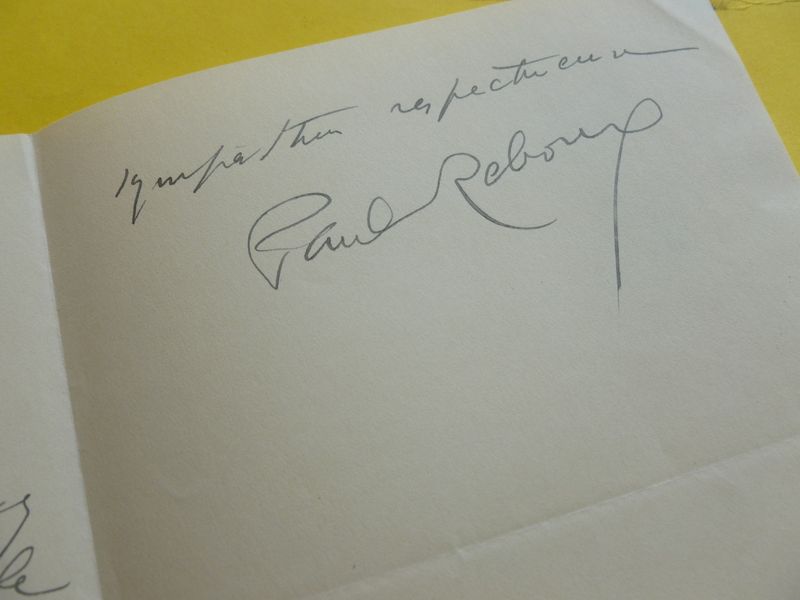 sympathies respectueuses
Paul Reboux
le